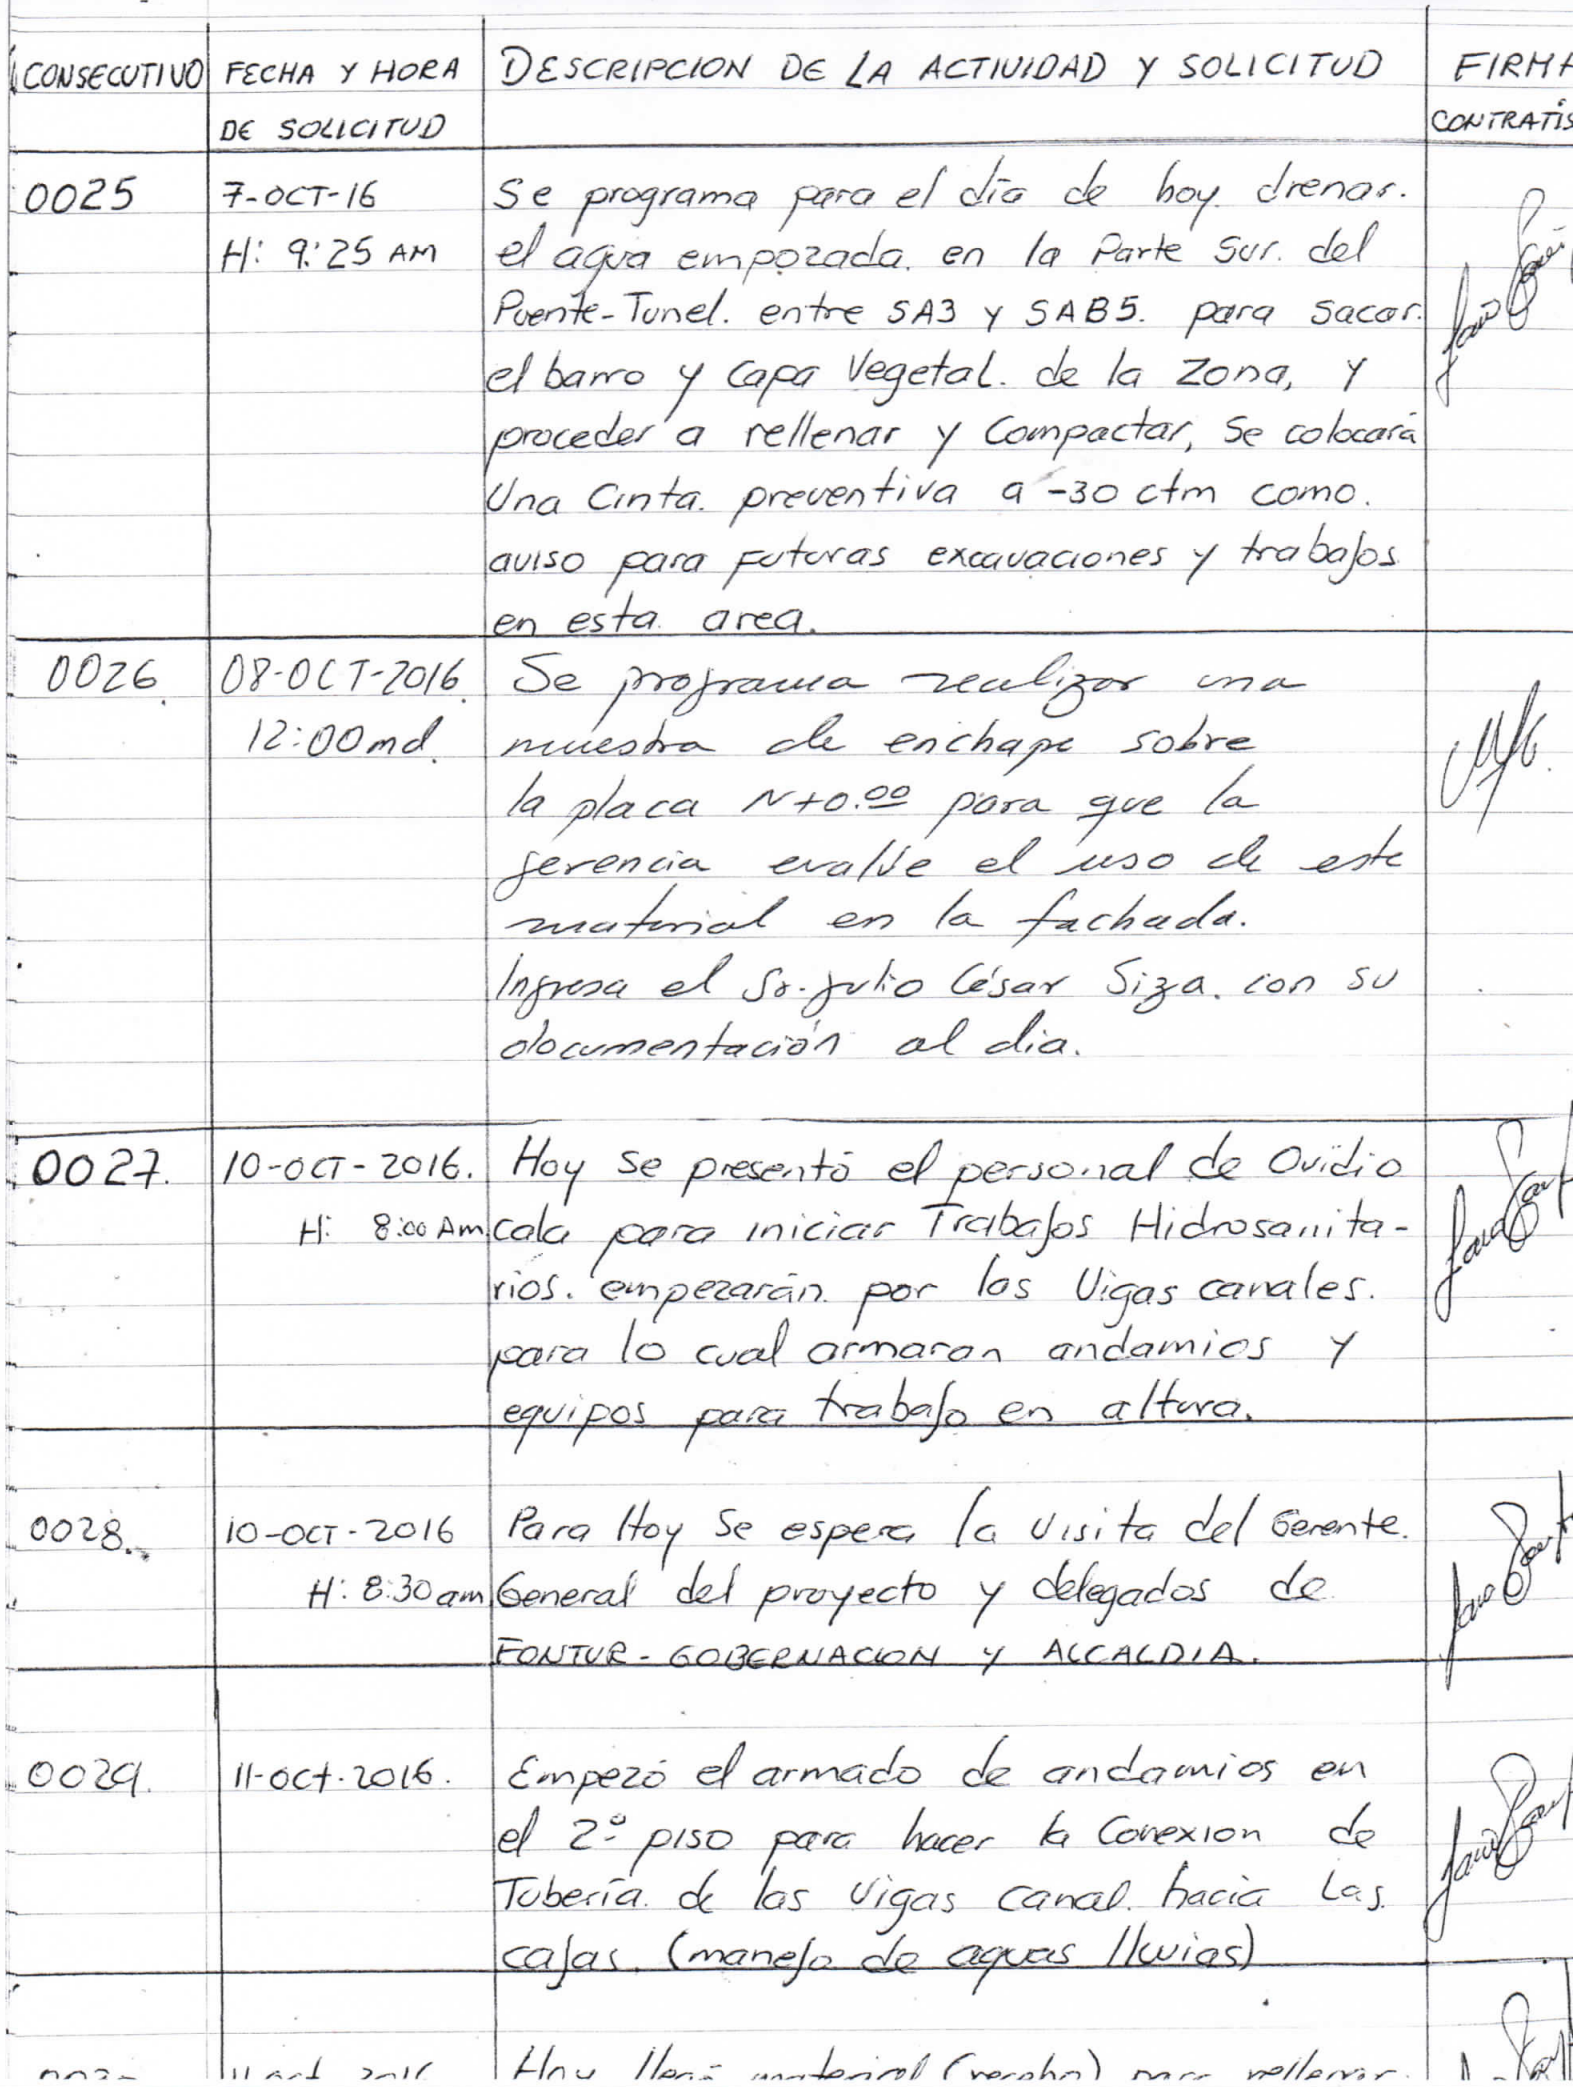 CONSECUTIVO FECHA Y HORA DESCRIPCION DE LA ACTIVIDAD Y SOLICITUD FIRMA
DE SOLICITUD CONTRATIS
0025 7-OCT-16 Se programa para el día de hoy. drenar.
H: 9:25 AM el agua empozada. en la Parte Sur. del
Puente-Tunel. entre SA3 y SAB5. para sacar.
el barro y Capa Vegetal. de la Zona, y
proceder a rellenar y Compactar, Se colocará
Una Cinta. preventiva a -30 ctm como.
aviso para futuras excavaciones y trabajos
en esta area.
0026. 08-OCT-2016. Se programa realizar una
12:00 md. muestra de enchape sobre
la placa N+0.00 para que la
gerencia evalúe el uso de este
material en la fachada.
Ingresa el Sr. Julio César Siza. con su
documentación al dia.
0027. 10-OCT-2016. Hoy Se presentó el personal de Ovidio
H: 8:00 Am Cala para iniciar Trabajos Hidrosanita-
rios. empezarán por las Vigas canales.
para lo cual armaran andamios y
equipos para trabajo en altura.
0028. 10-OCT-2016 Para Hoy Se espera la Visita del Gerente.
H: 8:30 am General del proyecto y delegados de
FONTUR - GOBERNACION y ALCALDIA.
0029. 11-oct-2016. Empezó el armado de andamios en
el 2º piso para hacer la Conexion de
Tubería. de las Vigas Canal. hacia Las.
cajas. (manejo de aguas lluvias)
11 oct 2016 Hoy llegó material (recebo) para rellenar.